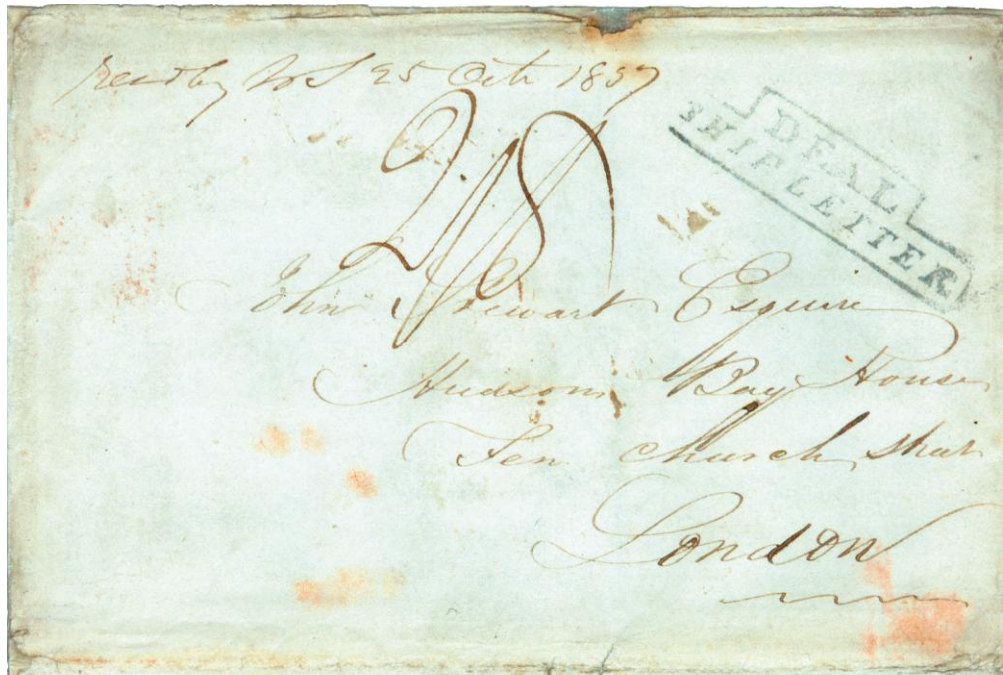 25 Octr 1837
DEAL
SHIP LETTER
2/8
John Stewart Esquire
Hudsons Bay House
Fen church street
London